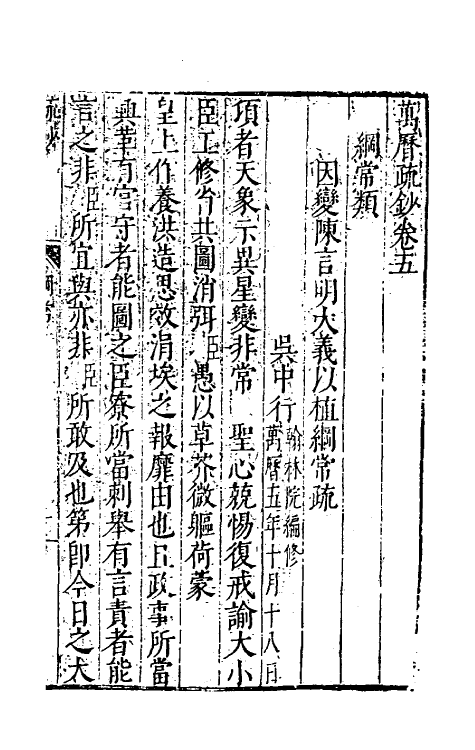 萬曆疏鈔卷五
綱常類
因變陳言明大義以植綱常疏
吳中行翰林院編修
萬曆五年十月十八日
項者天象示異星變非常　聖心兢惕復戒諭大小
臣工修省共圖消弭臣愚以草芥微軀荷蒙
皇上作養洪造思效涓埃之報靡由也且政事所當
興革有官守者能圖之臣寮所當刺舉有言責者能
言之非臣所宜與亦非臣所敢及也第即今日之大